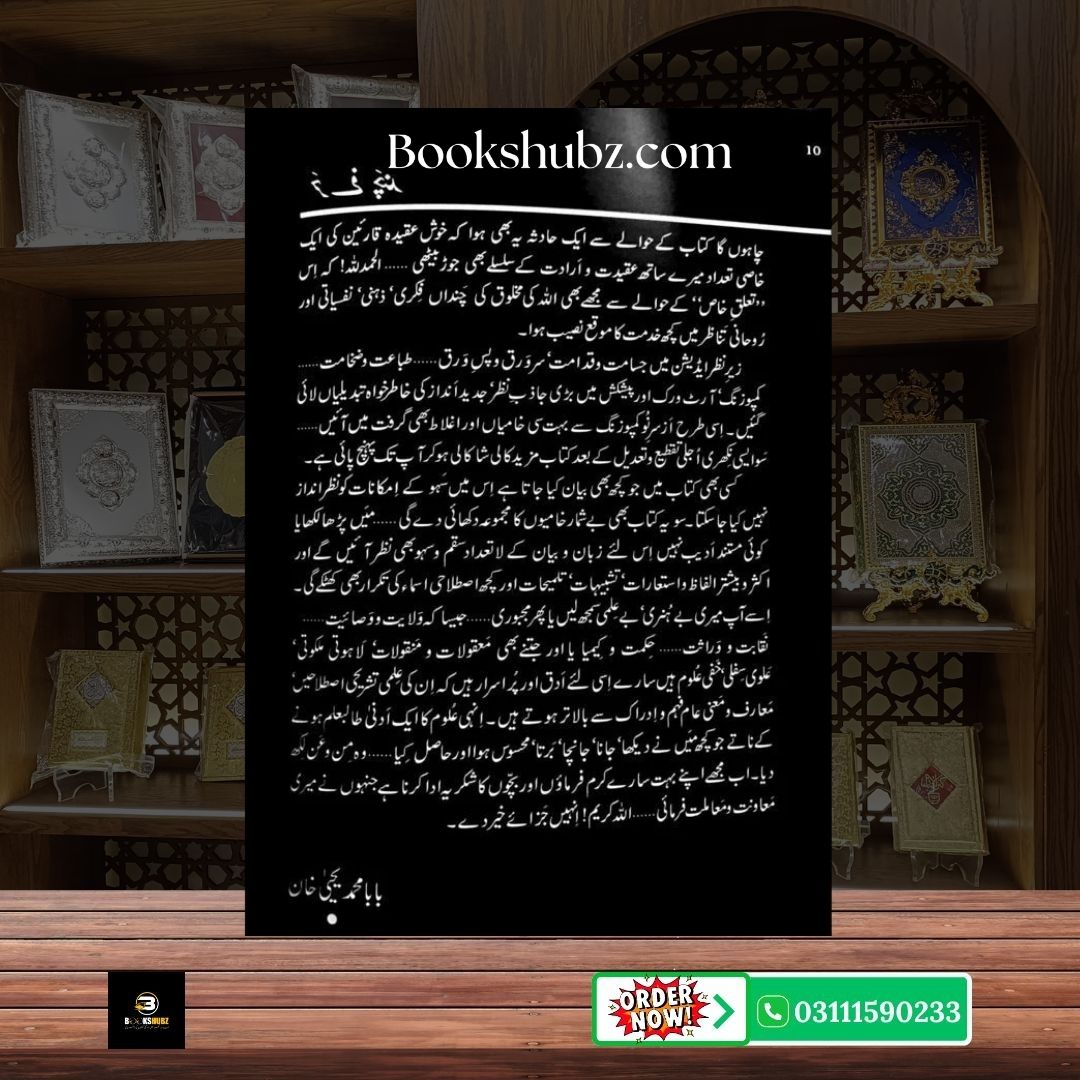 Bookshubz.com
10
چاہوں گا کتاب کے حوالے سے ایک حادثہ یہ بھی ہوا کہ خوش عقیدہ قارئین کی ایک
خاصی تعداد میرے ساتھ عقیدت و اَرادت کے سلسلے بھی جوڑ بیٹھی ...... الحمدللہ! کہ اِس
’’تعلقِ خاص‘‘ کے حوالے سے مجھے بھی اللہ کی مخلوق کی چنداں فِکری‘ ذہنی‘ نفسیاتی اور
رُوحانی تناظر میں کچھ خدمت کا موقع نصیب ہوا۔
زیرِ نظر ایڈیشن میں جسامت و قدامت‘ سرورق و پسِ وَرق ...... طباعت و ضخامت ......
کمپوزنگ‘ آرٹ ورک اور پیشکش میں بڑی جاذبِ نظر‘ جدید اَنداز کی خاطرخواہ تبدیلیاں لائی
گئیں۔ اِسی طرح اَزسرِنو کمپوزنگ سے بہت سی خامیاں اور اغلاط بھی گرفت میں آئیں ......
سَو ایسی نکھری اُجلی تقطیع و تعدیل کے بعد کتاب مزید کالی شا کالی ہو کر آپ تک پہنچ پائی ہے۔
کسی بھی کتاب میں جو کچھ بھی بیان کیا جاتا ہے اِس میں سَہو کے اِمکانات کو نظرانداز
نہیں کیا جا سکتا۔ سو یہ کتاب بھی بے شمار خامیوں کا مجموعہ دکھائی دے گی ...... میَں پڑھا لکھا یا
کوئی مستند اَدیب نہیں اِس لئے زبان و بیان کے لاتعداد سقم و سہو بھی نظر آئیں گے اور
اکثر و بیشتر الفاظ و استعارات‘ تشبیہات‘ تلمیحات اور کچھ اصطلاحی اسماء کی تکرار بھی کھٹکے گی۔
اِسے آپ میری بے ہُنری‘ بے علمی سمجھ لیں یا پھر مجبوری ...... جیسا کہ وَلایت و وَصائیت ......
نقابت و وَراثت ...... حِکمت و کیمیا یا اور جتنے بھی مَعقولات و مَنقولات‘ لاہوتی ملکوتی‘
عَلوی سفلی‘ خفی عُلوم ہیں سارے اِسی لئے اَدق اور پُراسرار ہیں کہ اِن کی علمی تشریحی اصطلاحیں‘
مَعارف و معنی عام فہم و اِدراک سے بالاتر ہوتے ہیں۔ اِنہی عُلوم کا ایک اَدنیٰ طالبعلم ہونے
کے ناتے جو کچھ میَں نے دیکھا‘ جانا‘ جانچا‘ بَرتا‘ محسوس ہوا اور حاصل کیا ...... وہ مِن و عَن لکھ
دیا۔ اب مجھے اپنے بہت سارے کرم فرماؤں اور بچّوں کا شکریہ ادا کرنا ہے جنہوں نے میری
مَعاونت و مَعاملت فرمائی ...... اللہ کریم! اِنہیں جَزائے خیر دے۔
بابا محمد یحییٰ خان
BOOKSHUBZ
ORDER NOW!
03111590233